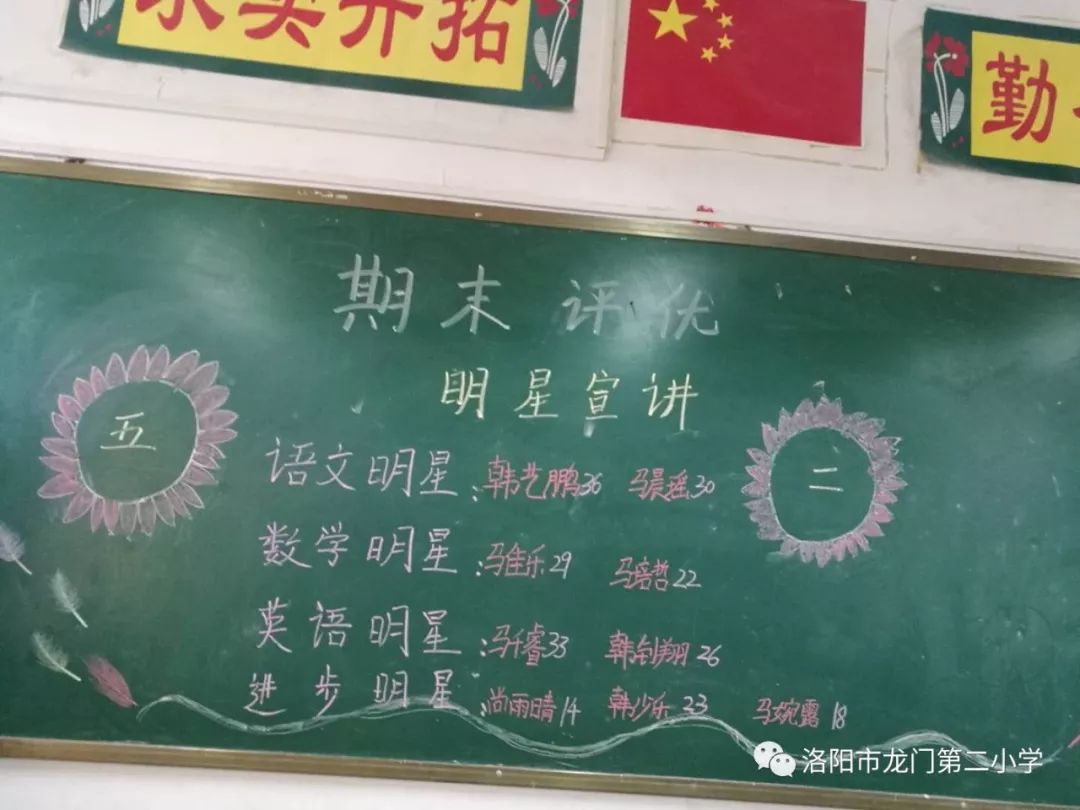 求实开拓
勤
期末评优
明星宣讲
五
二
语文明星：韩艺鹏36 马晨瑶30
数学明星：马佳乐29 马培哲22
英语明星：马千睿33 韩剑翔26
进步明星：尚雨晴14 韩少乐23 马婉露18
洛阳市龙门第二小学